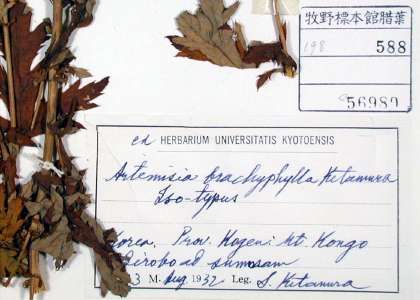 牧野標本館腊葉
198 588
56989
ex HERBARIUM UNIVERSITATIS KYOTOENSIS
Artemisia brachyphylla Kitamura
Iso-typus
Korea, Prov. Kogen: Mt. Kongo
ad
3 M. Aug. 1932 Leg. S. Kitamura